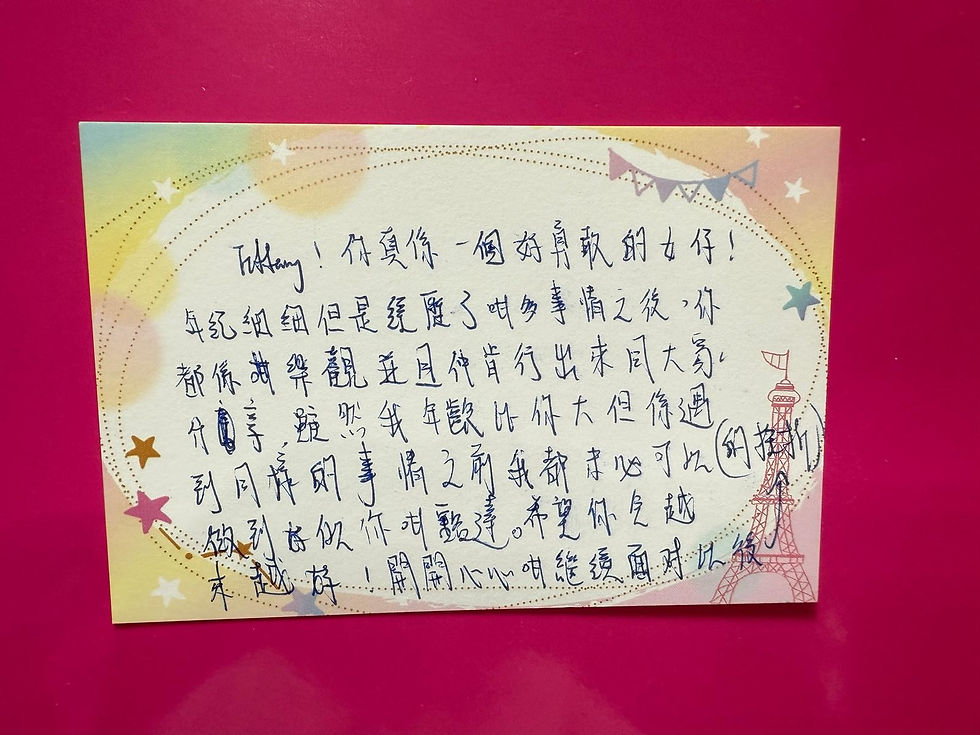 Tiffany！你真係一個好勇敢的女仔！
年紀細細但是經歷了咁多事情之後，你
都係咁樂觀並且仲肯行出來同大家
分享，雖然我年歡比你大但係遇
到同樣的事情之前我都未必可以
做到好似你咁豁達。希望你會越
來越好！開開心心咁繼續面对比後
(的挫折)